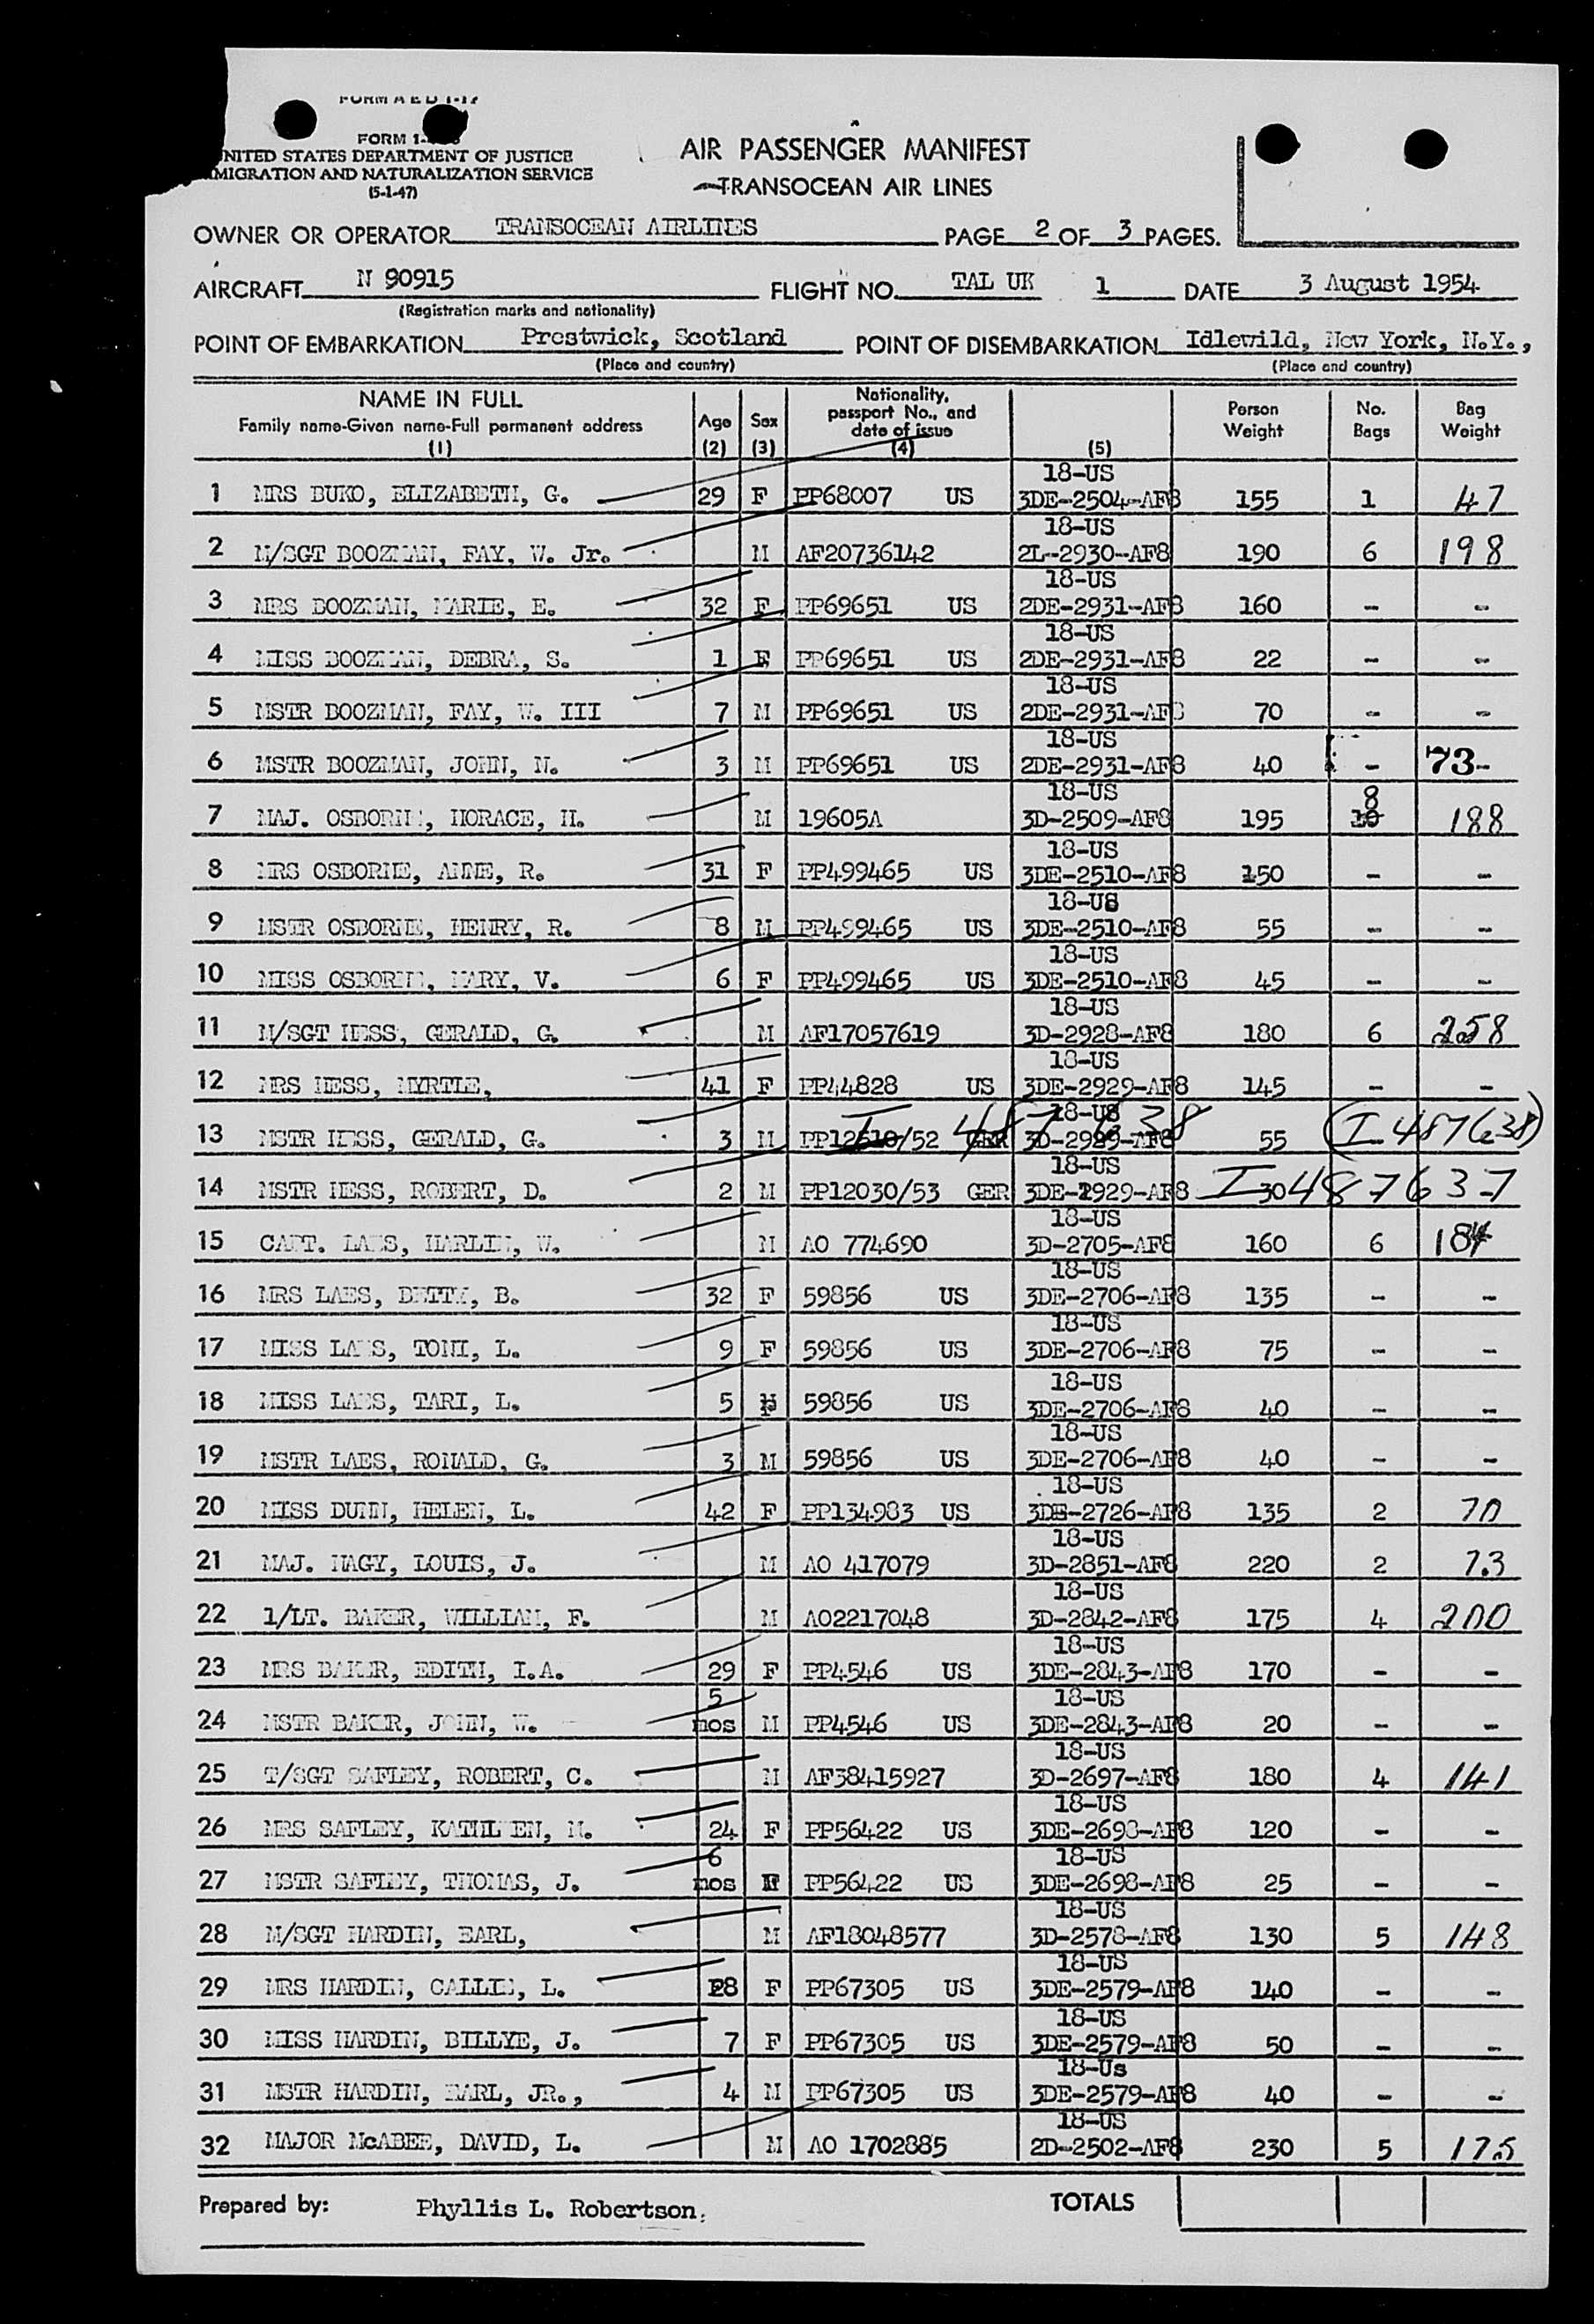 FORM A E D 1-17
FORM 1-
UNITED STATES DEPARTMENT OF JUSTICE
IMMIGRATION AND NATURALIZATION SERVICE
(5-1-47)
AIR PASSENGER MANIFEST
TRANSOCEAN AIR LINES
OWNER OR OPERATOR TRANSOCEAN AIRLINES PAGE 2 OF 3 PAGES.
AIRCRAFT N 90915 FLIGHT NO. TAL UK 1 DATE 3 August 1954
(Registration marks and nationality)
POINT OF EMBARKATION Prestwick, Scotland POINT OF DISEMBARKATION Idlewild, New York, N.Y.,
(Place and country) (Place and country)
NAME IN FULL Family name-Given name-Full permanent address (1) Age (2) Sex (3) Nationality, passport No., and date of issue (4) (5) Person Weight No. Bags Bag Weight
18-US
1 MRS BUKO, ELIZABETH, G. 29 F PP68007 US 3DE-2504-AF8 155 1 47
18-US
2 M/SGT BOOZMAN, FAY, W. Jr. M AF20736142 2L-2930-AF8 190 6 198
18-US
3 MRS BOOZMAN, MARIE, E. 32 F PP69651 US 2DE-2931-AF8 160 - -
18-US
4 MISS BOOZMAN, DEBRA, S. 1 F PP69651 US 2DE-2931-AF8 22 - -
18-US
5 MSTR BOOZMAN, FAY, W. III 7 M PP69651 US 2DE-2931-AF8 70 - -
18-US
6 MSTR BOOZMAN, JOHN, N. 3 M PP69651 US 2DE-2931-AF8 40 - 73-
18-US 8
7 MAJ. OSBORNE, HORACE, H. M 19605A 3D-2509-AF8 195 10 188
18-US
8 MRS OSBORNE, ANNE, R. 31 F PP499465 US 3DE-2510-AF8 150 - -
18-US
9 MSTR OSBORNE, HENRY, R. 8 M PP499465 US 3DE-2510-AF8 55 - -
18-US
10 MISS OSBORNE, MARY, V. 6 F PP499465 US 3DE-2510-AF8 45 - -
18-US
11 M/SGT HESS, GERALD, G. M AF17057619 3D-2928-AF8 180 6 258
18-US
12 MRS HESS, MYRTLE, 41 F PP44828 US 3DE-2929-AF8 145 - -
I 487638 18-US
13 MSTR HESS, GERALD, G. 3 M PP12610/52 GER 3D-2929-AF8 55 (I 487638)
18-US
14 MSTR HESS, ROBERT, D. 2 M PP12030/53 GER 3DE-2929-AF8 30 I 487637
18-US
15 CAPT. LAES, HARLIN, W. M AO 774690 3D-2705-AF8 160 6 184
18-US
16 MRS LAES, BETTY, B. 32 F 59856 US 3DE-2706-AF8 135 - -
18-US
17 MISS LAES, TONI, L. 9 F 59856 US 3DE-2706-AF8 75 - -
18-US
18 MISS LAES, TARI, L. 5 F 59856 US 3DE-2706-AF8 40 - -
18-US
19 MSTR LAES, RONALD, G. 3 M 59856 US 3DE-2706-AF8 40 - -
18-US
20 MISS DUNN, HELEN, L. 42 F PP134983 US 3DE-2726-AF8 135 2 70
18-US
21 MAJ. NAGY, LOUIS, J. M AO 417079 3D-2851-AF8 220 2 73
18-US
22 1/LT. BAKER, WILLIAM, F. M AO2217048 3D-2842-AF8 175 4 200
18-US
23 MRS BAKER, EDITH, I.A. 29 F PP4546 US 3DE-2843-AF8 170 - -
5 18-US
24 MSTR BAKER, JOHN, W. mos M PP4546 US 3DE-2843-AF8 20 - -
18-US
25 T/SGT SAFLEY, ROBERT, C. M AF38415927 3D-2697-AF8 180 4 141
18-US
26 MRS SAFLEY, KATHLEEN, M. 24 F PP56422 US 3DE-2698-AF8 120 - -
6 18-US
27 MSTR SAFLEY, THOMAS, J. mos M PP56422 US 3DE-2698-AF8 25 - -
18-US
28 M/SGT HARDIN, EARL, M AF18048577 3D-2578-AF8 130 5 148
18-US
29 MRS HARDIN, CALLIE, L. 28 F PP67305 US 3DE-2579-AF8 140 - -
18-US
30 MISS HARDIN, BILLYE, J. 7 F PP67305 US 3DE-2579-AF8 50 - -
18-Us
31 MSTR HARDIN, EARL, JR., 4 M PP67305 US 3DE-2579-AF8 40 - -
18-US
32 MAJOR McABEE, DAVID, L. M AO 1702885 2D-2502-AF8 230 5 175
Prepared by: Phyllis L. Robertson. TOTALS